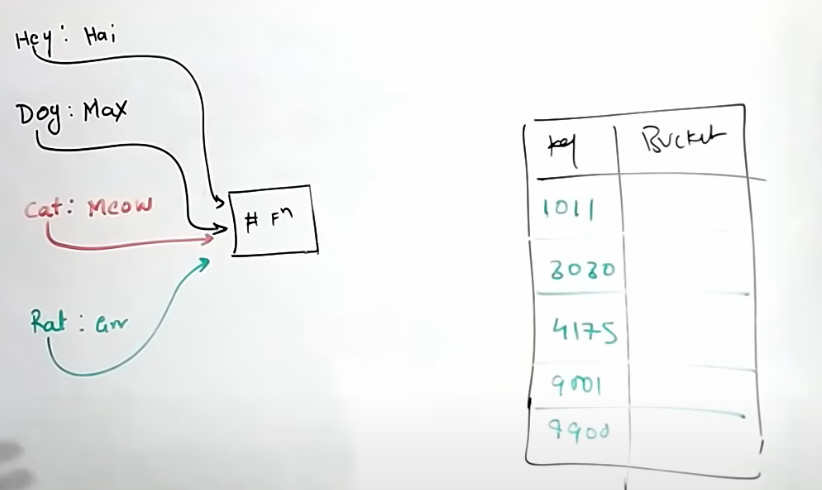 Hey: Hai
Dog: Max
Cat: Meow
Rat: Grr
# Fⁿ
key Bucket
1011
3030
4175
9001
9900